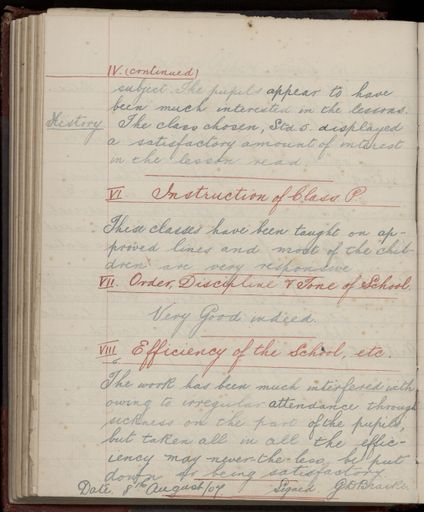 IV. (continued)
subject. The pupils appear to have
been much interested in the lessons.
History The class chosen, Std 5. displayed
a satisfactory amount of interest
in the lesson read.
VI Instruction of Class. P.
These classes have been taught on ap-
proved lines and most of the chil-
dren are very responsive
VII. Order, Discipline & Tone of School.
Very Good indeed.
VIII Efficiency of the School, etc.
The work has been much interfered with
owing to irregular attendance through
sickness on the part of the pupils,
but taken all in all the effic-
iency may never-the-less be put
down as being satisfactory
Date, 8th August/07 Signed